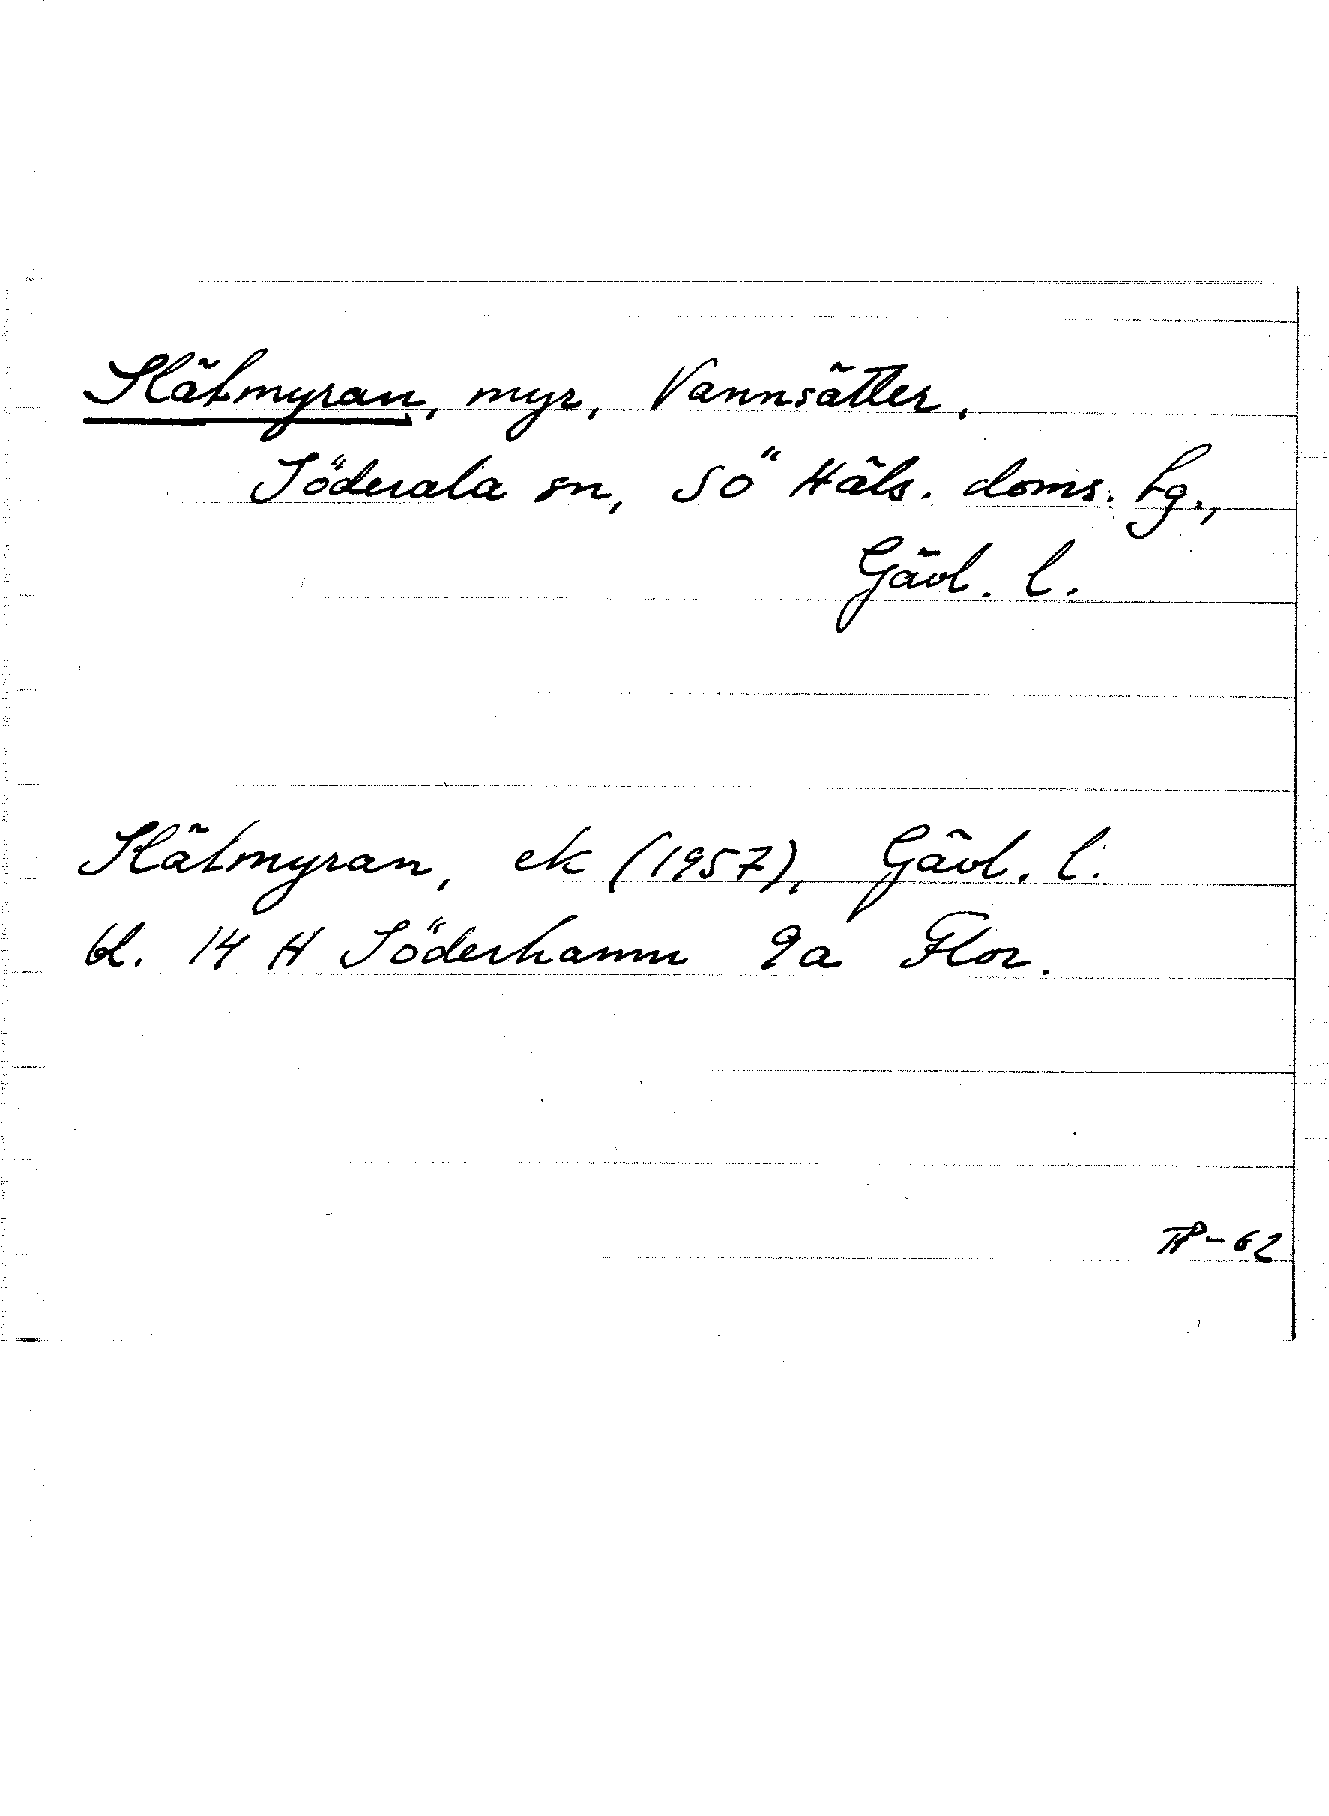 Slåtmyran, myr, Vannsätter,
Söderala sn, Sö Häls. doms. hg.,
Gävl. l.
Slåtmyran, ek (1957), Gävl. l.
bl. 14 H Söderhamn 9a Flor.
-62